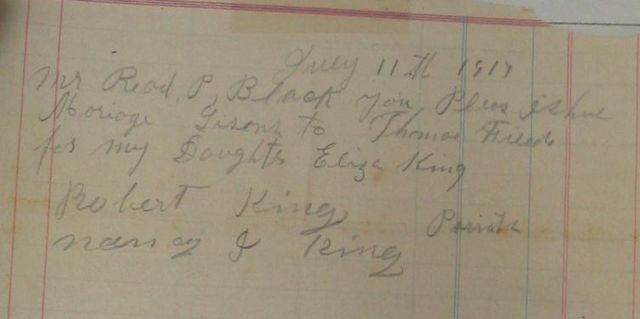 July 11th 1919
Mr Read, P, Black you Pleas ishue
Moriage Lisons to Thomas
for my Doughter Eliza King
Robert King
Nancy J King